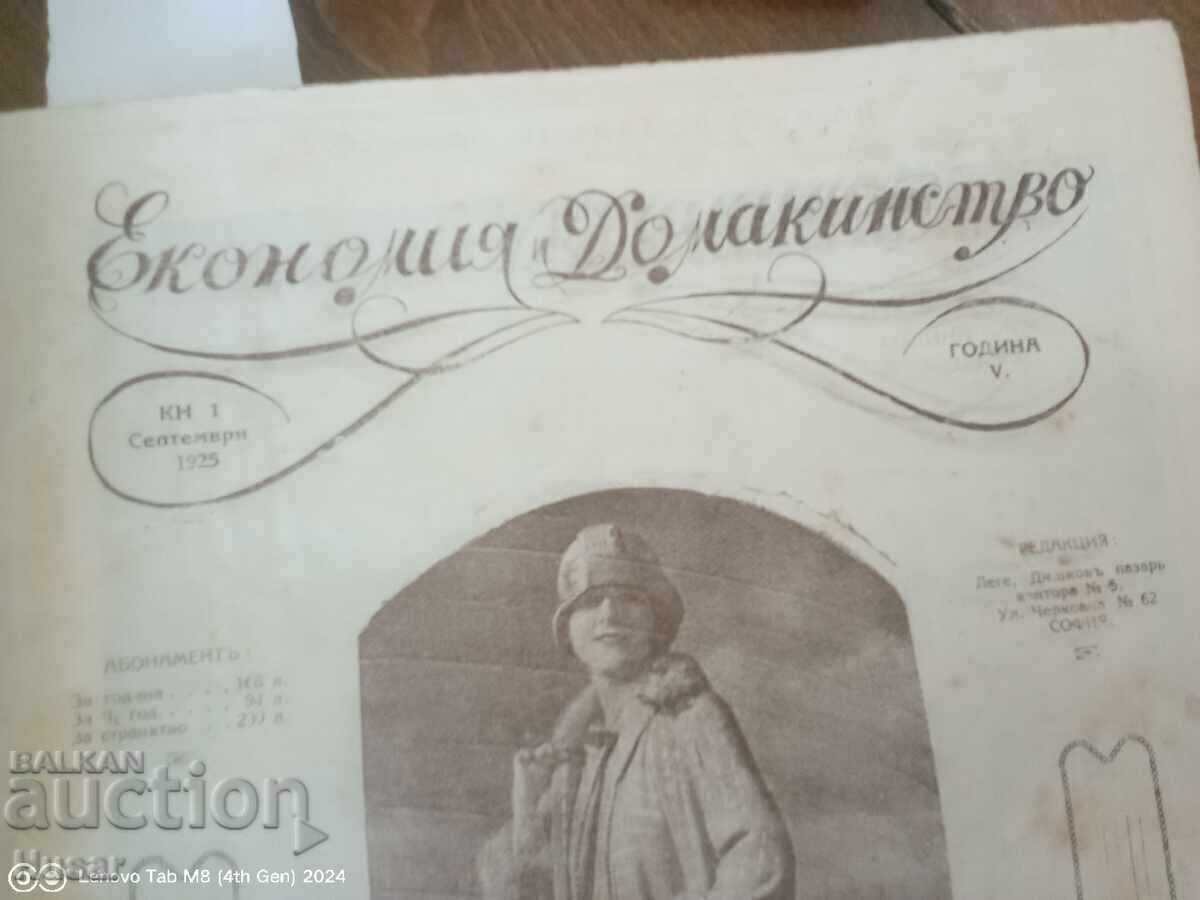 Економия и Домакинство
КН 1
Септември
1925
ГОДИНА
V.
РЕДАКЦИЯ:
пазарь
№ 6.
Ул. Черковна № 62
СОФИЯ
АБОНАМЕНТЪ:
За година . . . . л.
За ½ год. . . . . л.
За странство . . л.
BALKAN
auction
Husar
Lenovo Tab M8 (4th Gen) 2024